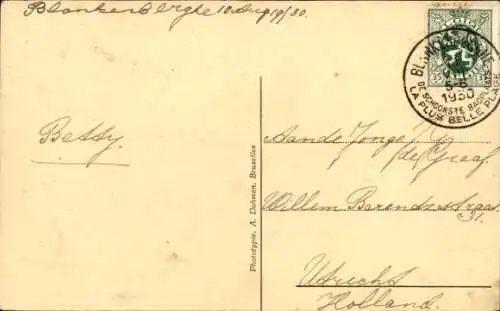 Blankenberghe 10 Aug 19/30.
BELGIE
35
BLANKENBERGHE
1930
DE SCHOONSTE BADPLAATS
LA PLUS BELLE PLAGE
Betty.
Aan de Jonge
de Graaf.
Willem Barendszstraat
31.
Utrecht
Holland.
Phototypie. A. Dohmen, Bruxelles